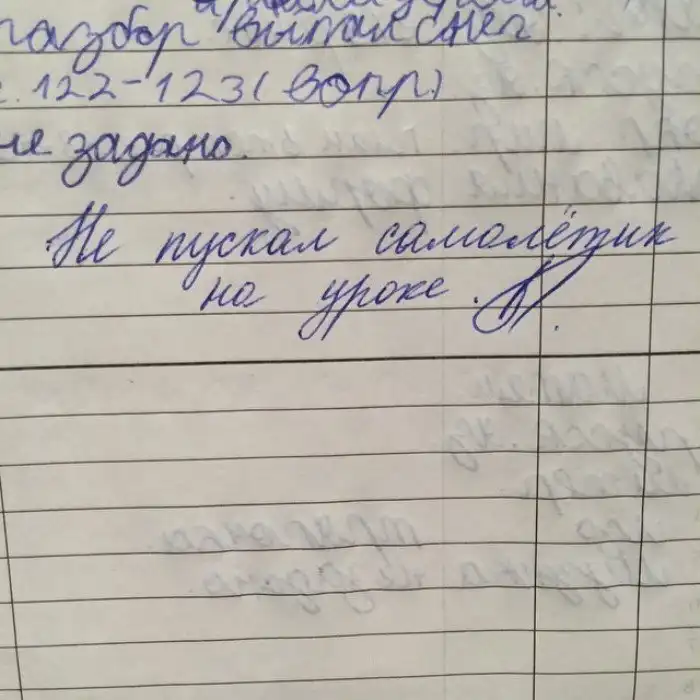 разбор выпал снег
с. 122-123 (вопр.)
не задано.
Не пускал самолётик
на уроке.